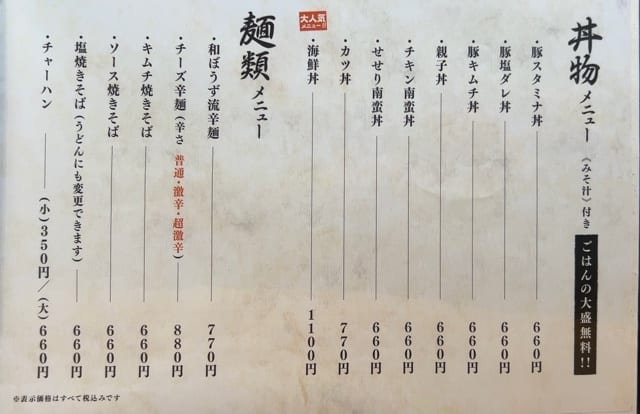 丼物メニュー《みそ汁》付き ごはんの大盛無料!!
・豚スタミナ丼 660円
・豚塩ダレ丼 660円
・豚キムチ丼 660円
・親子丼 660円
・チキン南蛮丼 660円
・せせり南蛮丼 660円
・カツ丼 770円
大人気
メニュー!!
・海鮮丼 1100円
麺類メニュー
・和ぼうず流辛麺 770円
・チーズ辛麺(辛さ 普通・激辛・超激辛) 880円
・キムチ焼きそば 660円
・ソース焼きそば 660円
・塩焼きそば(うどんにも変更できます) 660円
・チャーハン (小)350円/(大)660円
※表示価格はすべて税込みです